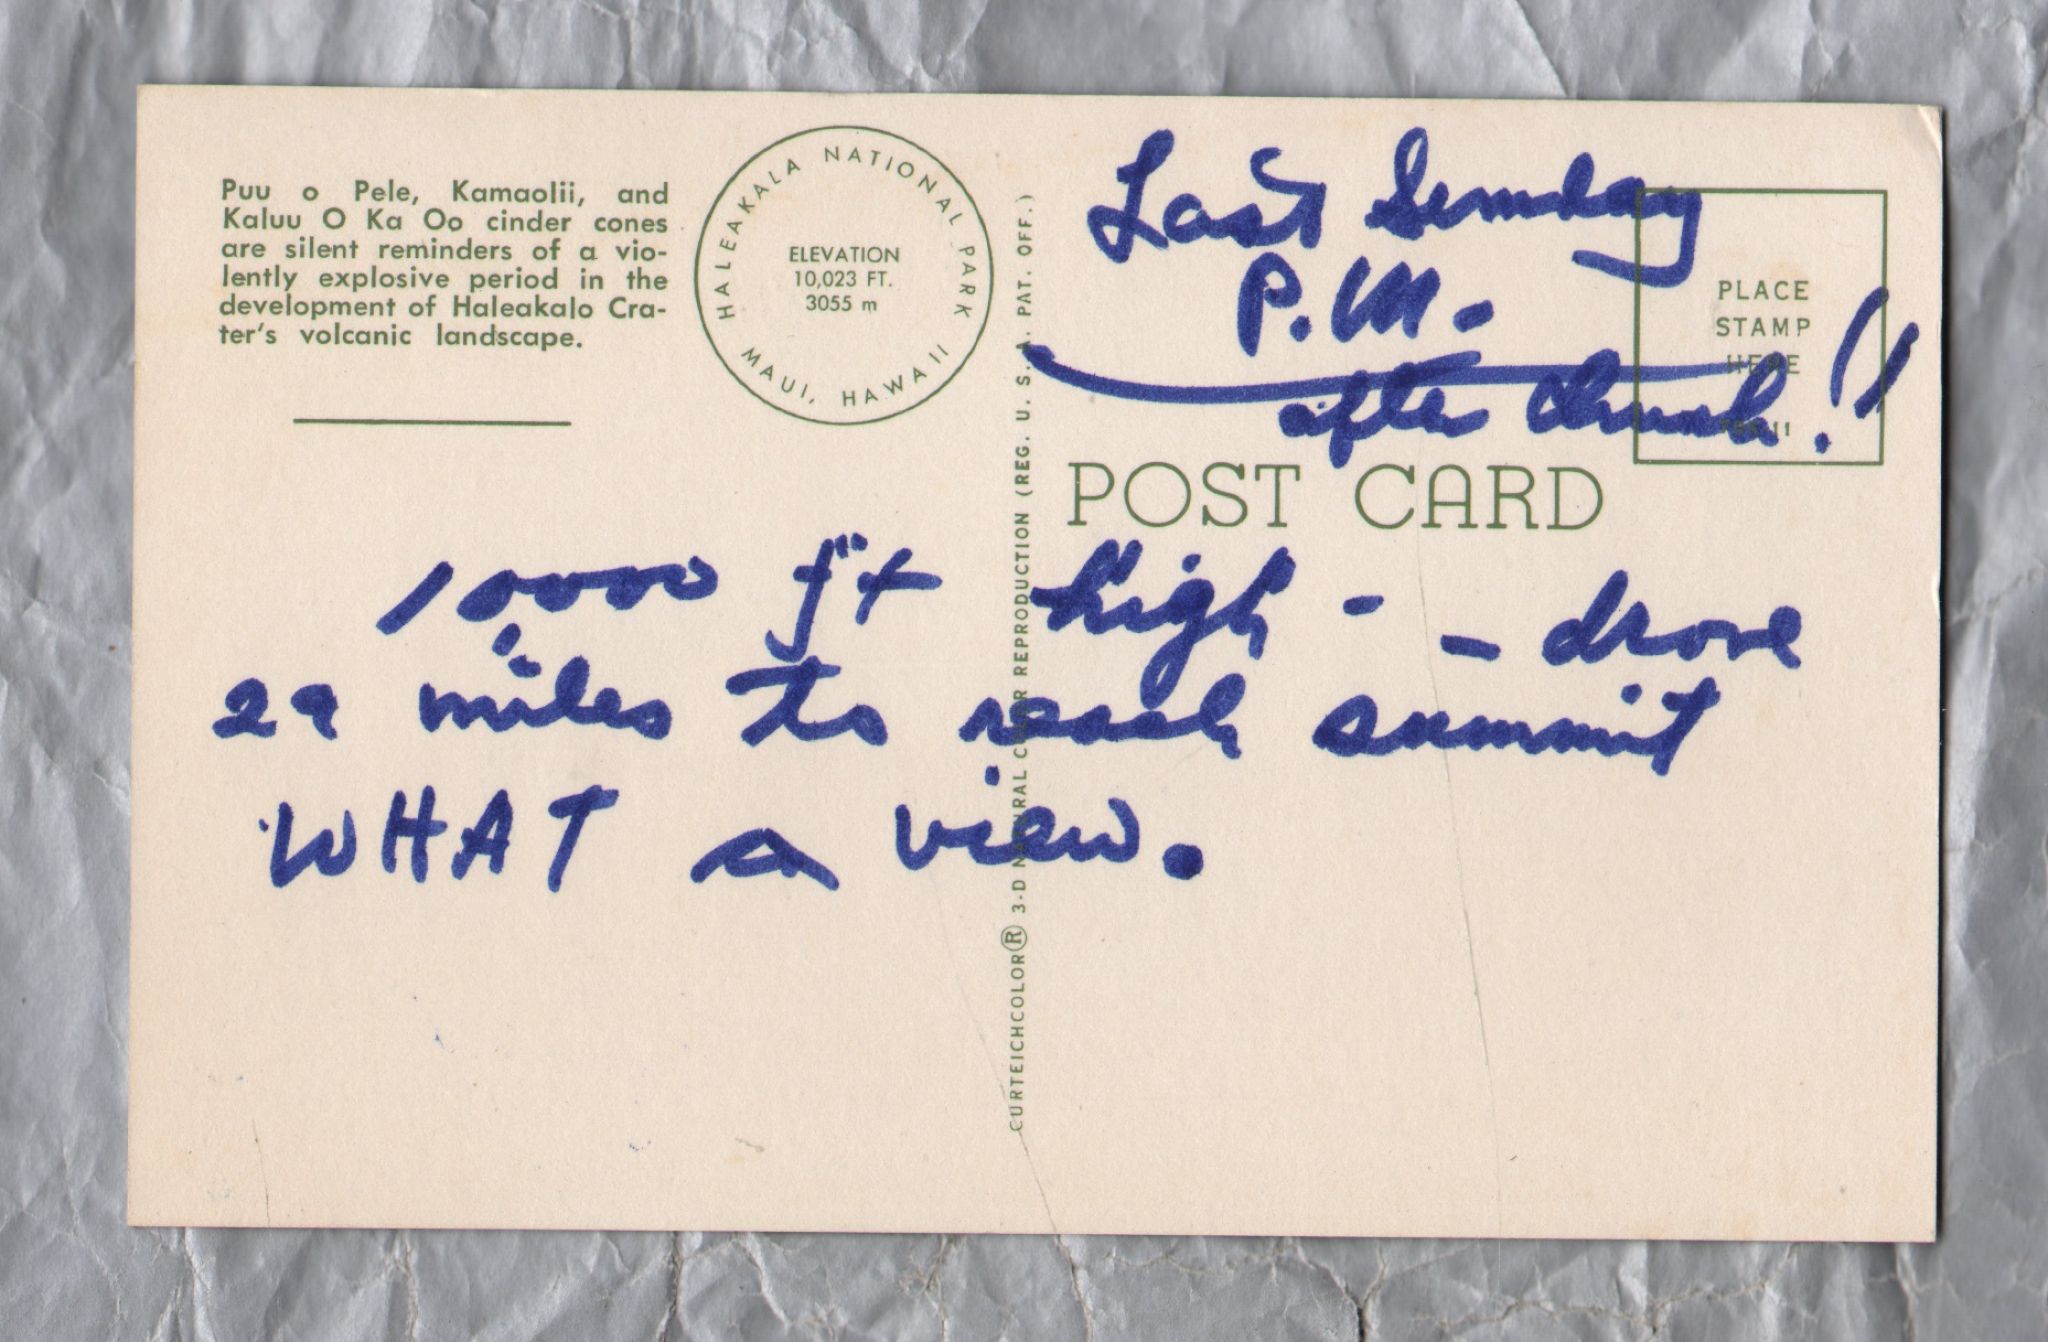 Puu o Pele, Kamaolii, and
Kaluu O Ka Oo cinder cones
are silent reminders of a vio-
lently explosive period in the
development of Haleakalo Cra-
ter's volcanic landscape.
HALEAKALA NATIONAL PARK
MAUI, HAWAII
ELEVATION
10,023 FT.
3055 m
Last Sunday
P.M.
after church!!
PLACE
STAMP
HERE
POST CARD
10000 ft high - - drove
29 miles to reach summit
WHAT a view.
CURTEICHCOLOR® 3-D NATURAL COLOR REPRODUCTION (REG. U. S. A. PAT. OFF.)